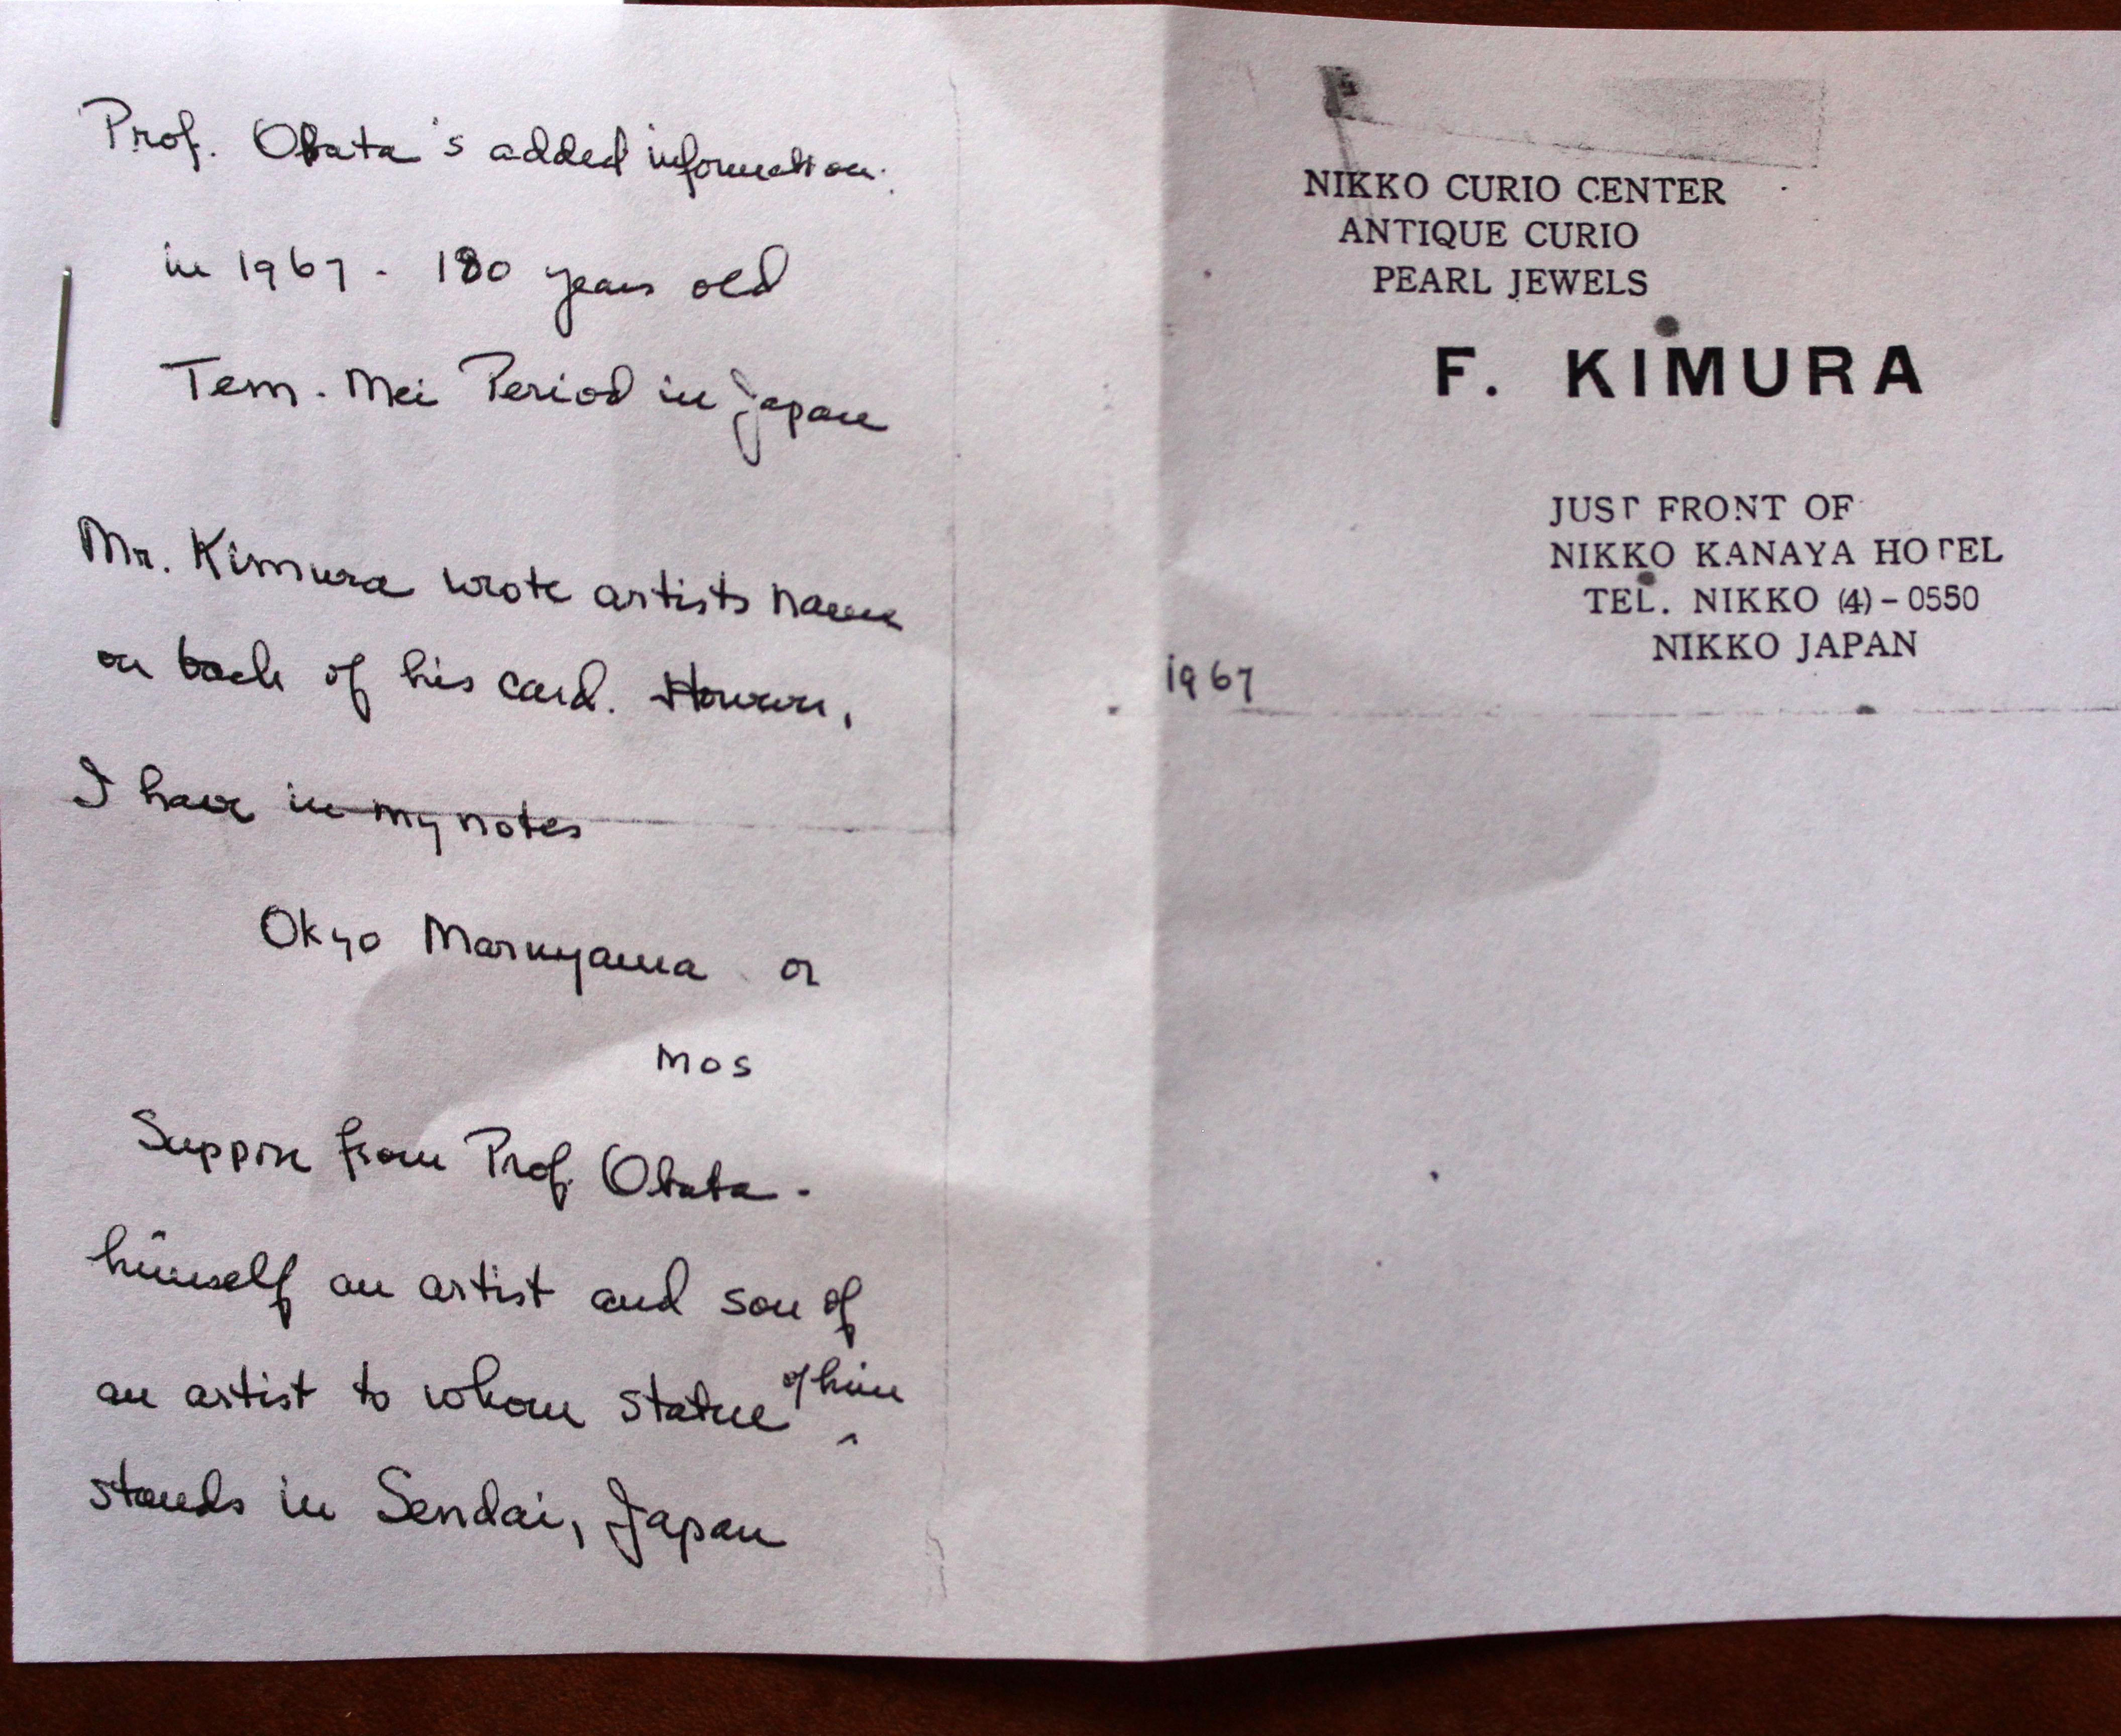 Prof. Obata's added information:
in 1967 - 180 years old
Tem-Mei Period in Japan
Mr. Kimura wrote artists name
on back of his card. However,
I have in my notes
Okyo Maruyama or
mos
from Prof. Obata -
himself an artist and son of
an artist to whom statue of him
^
stands in Sendai, Japan
NIKKO CURIO CENTER
ANTIQUE CURIO
PEARL JEWELS
F. KIMURA
JUST FRONT OF
NIKKO KANAYA HOTEL
TEL. NIKKO (4)-0550
NIKKO JAPAN
1967